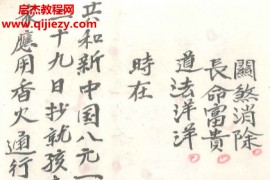 启杰教程官网
www.qijiezy.com
關煞消除
長命富貴
道法洋洋
時在
共和新中国八元
十九日抄就孩
應用香火通行